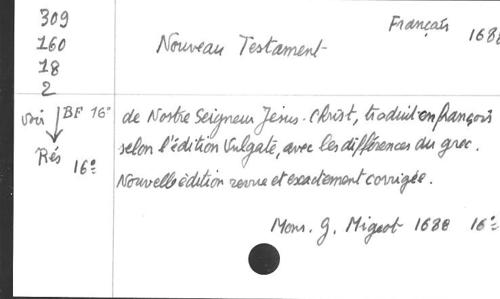 309
160
18
2
Français 1688
Nouveau Testament
voir BF 16º
Rés 16º
de Nostre Seigneur Jésus-Christ, traduit en françois
selon l'édition Vulgate, avec les différences du grec.
Nouvelle édition revue et exactement corrigée.
Mons. G. Migeot 1688 16º